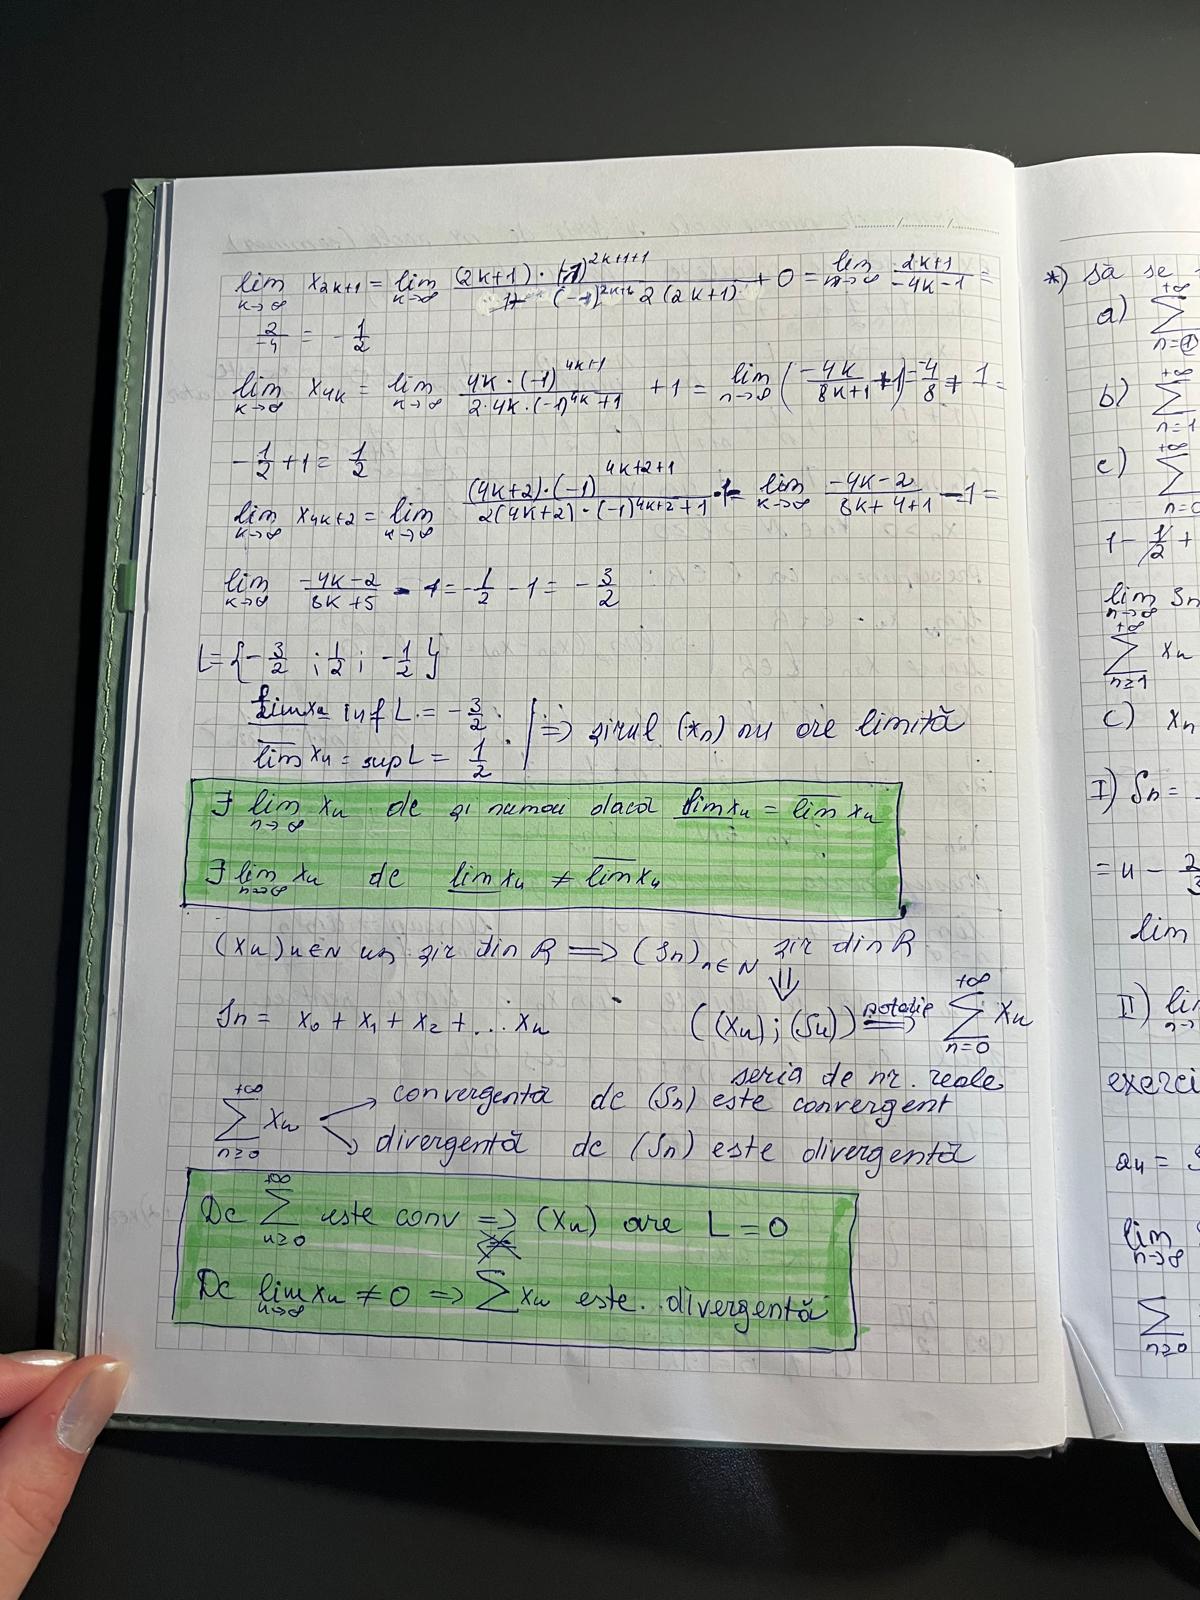 lim_{k→∞} x_{2k+1} = lim_{k→∞} (2k+1)·(-1)^{2k+1+1} / 2(2k+1) + 0 = lim_{n→∞} 2k+1 / -4k-1 =
2/-4 = -1/2
lim_{k→∞} x_{4k} = lim_{k→∞} 4k·(-1)^{4k+1} / 2·4k·(-1)^{4k}+1 + 1 = lim_{n→∞} (-4k / 8k+1 + 1) = -4/8 + 1 =
-1/2 + 1 = 1/2
lim_{k→∞} x_{4k+2} = lim_{k→∞} (4k+2)·(-1)^{4k+2+1} / 2(4k+2)·(-1)^{4k+2}+1 - 1 = lim_{k→∞} -4k-2 / 8k+4+1 - 1 =
lim_{k→∞} -4k-2 / 8k+5 - 1 = -1/2 - 1 = -3/2
L = {-3/2 ; 1/2 ; -1/2}
lim xn inf L = -3/2
lim xn = sup L = 1/2 | => șirul (xn) nu are limită
∃ lim_{n→∞} xn dc și numai dacă lim xn = lim xn
∄ lim_{n→∞} xn dc lim xn ≠ lim xn
(xn)n∈N un șir din R => (Sn)n∈N șir din R
⇓
Sn = x0 + x1 + x2 + ... xn ((xn) ; (Sn)) notație => Σ_{n=0}^{+∞} xn
seria de nr. reale
Σ_{n≥0}^{+∞} xn → convergentă dc (Sn) este convergent
→ divergentă dc (Sn) este divergentă
Dc Σ_{n≥0}^{+∞} este conv => (xn) are L = 0
Dc lim_{n→∞} xn ≠ 0 => Σ xn este divergentă
*) să se
a) Σ_{n=1}^{+∞}
b) Σ_{n=1}^{+∞}
c) Σ_{n=0}^{+∞}
1 - 1/2 +
lim_{n→∞} Sn
Σ_{n≥1}^{+∞} xn
c) xn
I) Sn =
= 4 - 2/3
lim
II) lim
exerci
an =
lim_{n→∞}
Σ_{n≥0}